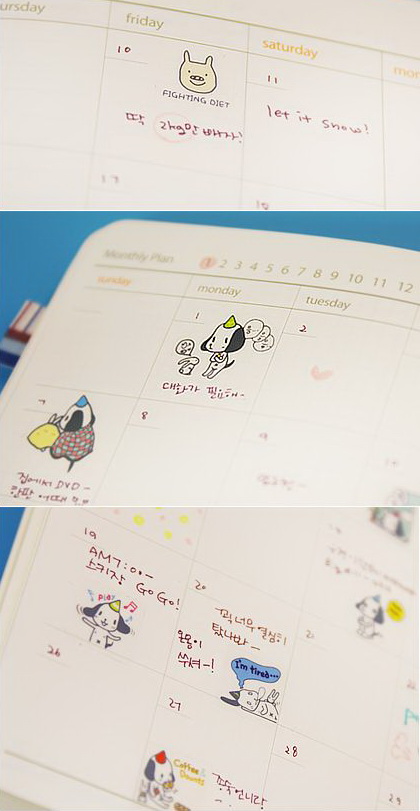 friday
saturday
10
11
FIGHTING DIET
딱 2kg만 빼자!
let it snow!
17
Monthly Plan 1 2 3 4 5 6 7 8 9 10 11 12
sunday
monday
tuesday
1
2
대화가 필요해~
7
8
9
집에서 DVD~
한판 어때?
19
AM 7:00~
스키장 Go Go!
20
너무 열심히
탔나봐~
온몸이
쑤셔~!
I'm tired...
21
26
27
28
29
Coffee &
Donuts